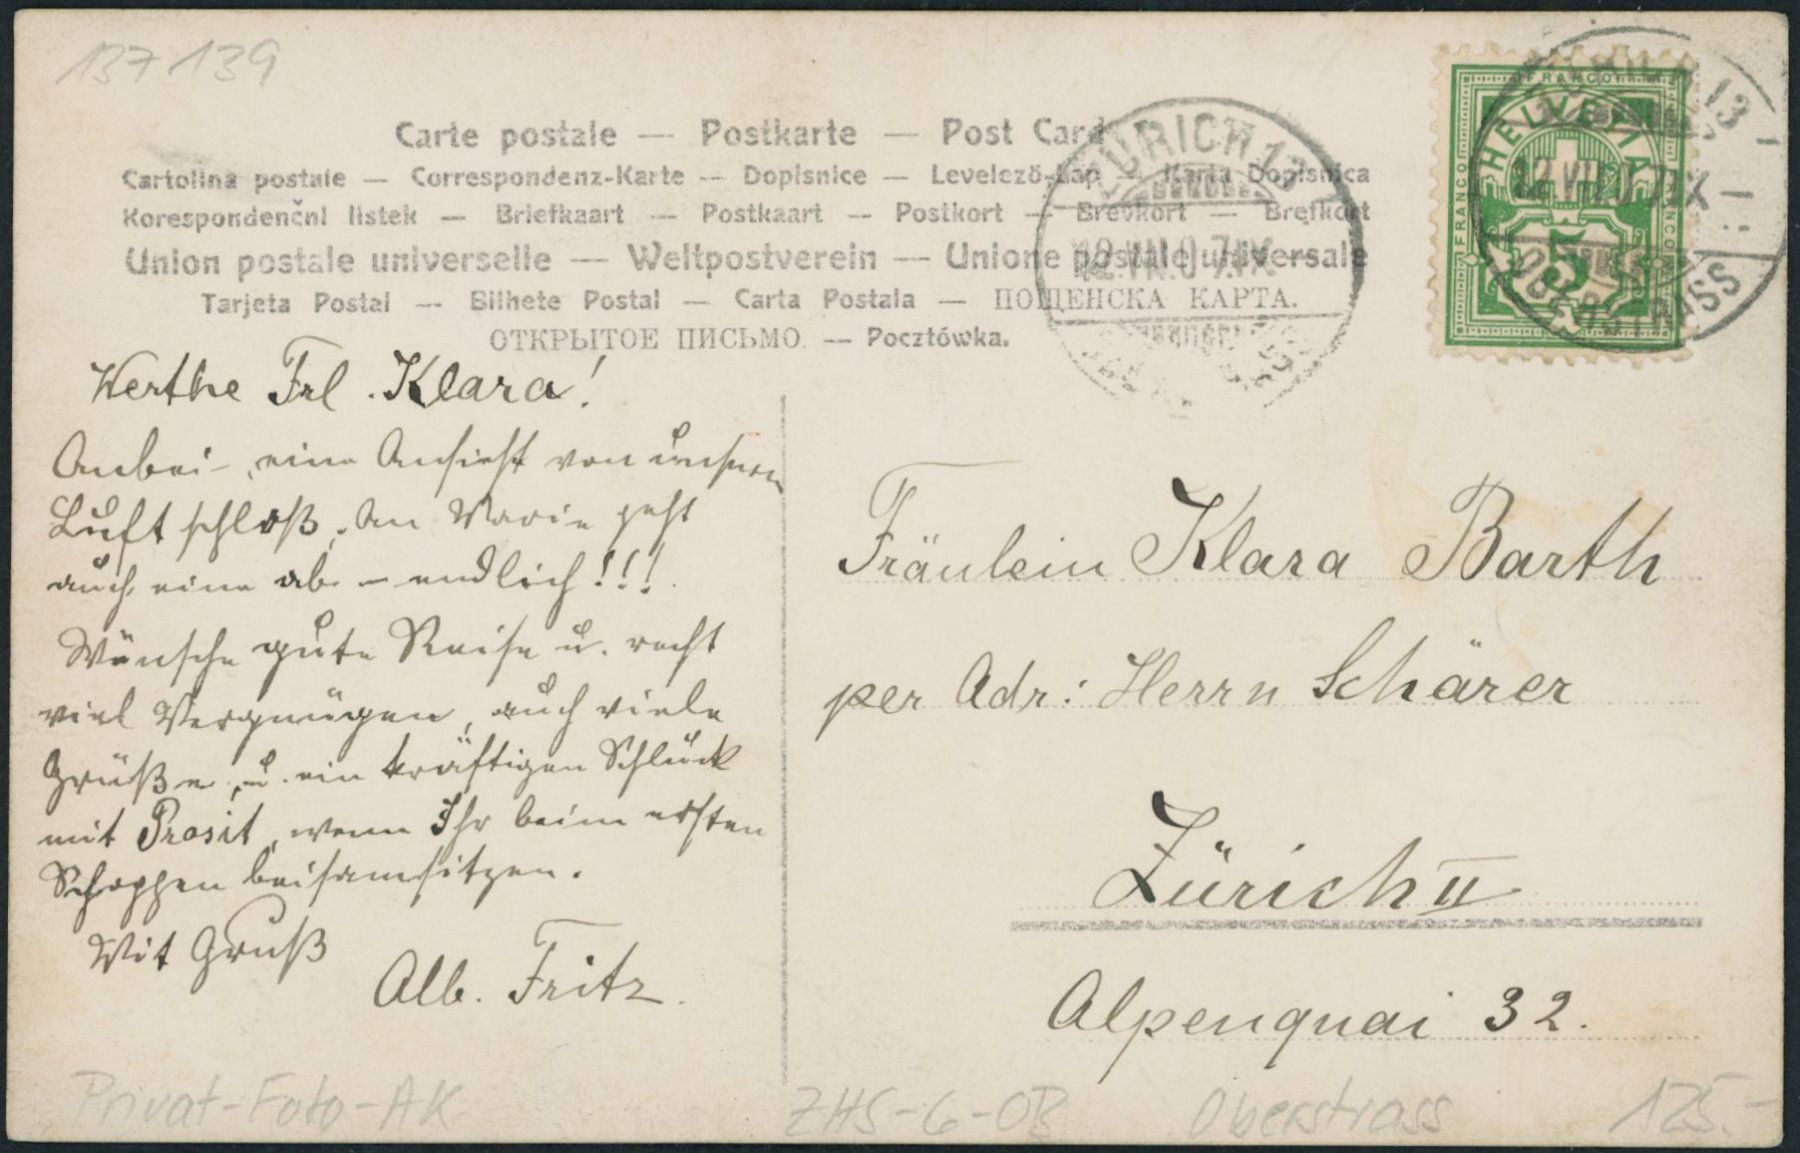 137 139
Carte postale — Postkarte — Post Card
Cartolina postale — Correspondenz-Karte — Dopisnice — Levelező-Lap — Karta Dopisnica
Korespondenční listek — Briefkaart — Postkaart — Postkort — Brevkort — Brefkort
Union postale universelle — Weltpostverein — Unione postale universale
Tarjeta Postal — Bilhete Postal — Carta Postala — ПОЩЕНСКА КАРТА.
ОТКРЫТОЕ ПИСЬМО. — Pocztówka.
ZÜRICH 13
12.VII.07.IX—
OBERSTRASS
FRANCO
HELVETIA
FRANCO
FRANCO
5
ZÜRICH 13
12.VII.07.IX—
OBERSTRASS
Werthe Frl. Klara!
Anbei eine Ansicht von unserm
Luftschloß, an Marie geht
auch eine ab – endlich!!!
Wünsche gute Reise u. recht
viel Vergnügen, auch viele
Grüße u. ein kräftigen Schluck
mit Prosit, wenn Ihr beim ersten
Schoppen beisamsitzen.
Mit Gruß
Alb. Fritz.
Fräulein Klara Barth
per Adr: Herrn Schärer
Zürich II
Alpenquai 32.
Privat-Foto-AK
ZHS-6-OB
Oberstrass
125.-